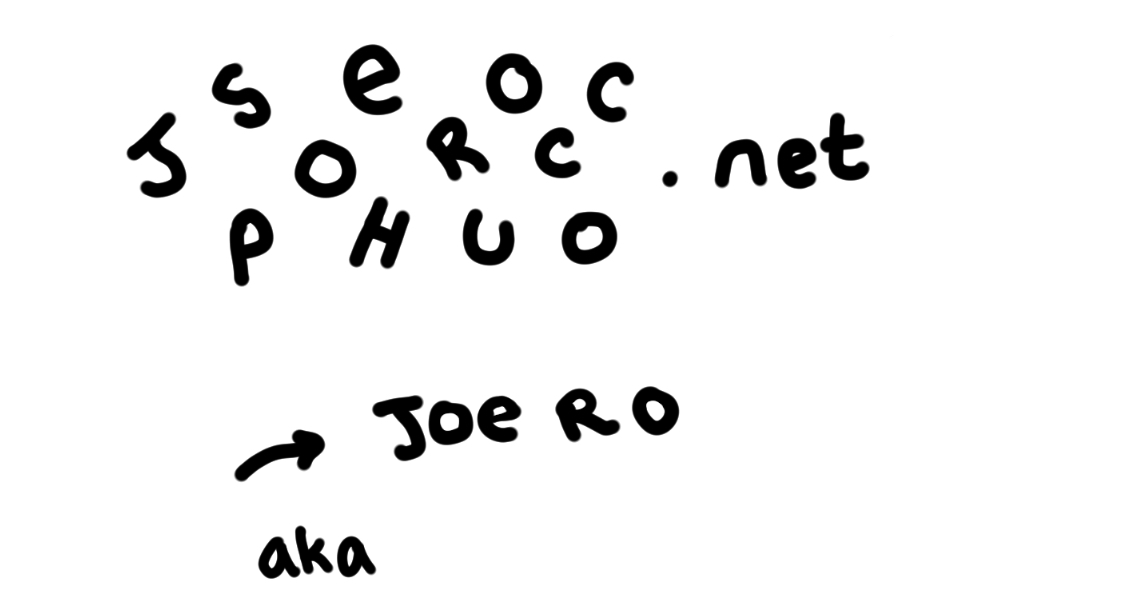 S e O C
J O R C . net
P H U O
JOe RO
aka